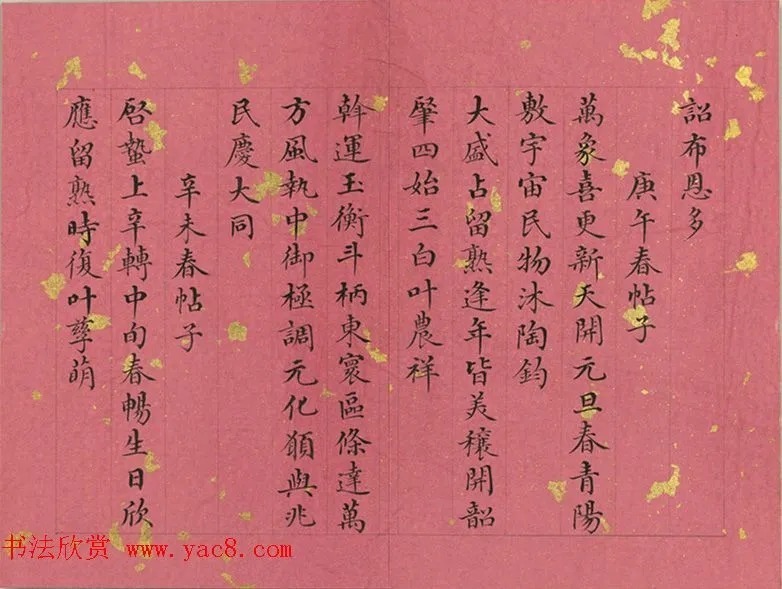 詔布恩多
庚午春帖子
萬象喜更新天開元旦春青陽
敷宇宙民物沐陶鈞
大盛占留熟逢年皆美穰開韶
肇四始三白叶農祥
斡運玉衡斗柄東寰區條達萬
方風執中御極調元化願與兆
民慶大同
辛未春帖子
啓蟄上辛轉中旬春暢生日欣
應留熟時復叶孳萌
书法欣赏 www.yac8.com